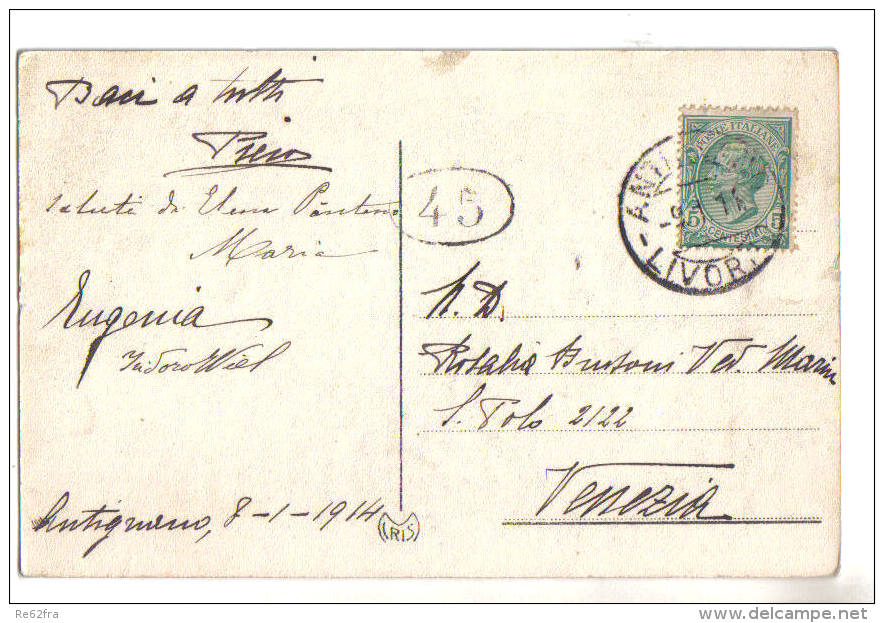 Baci a tutti
Piero
Saluti da Elena
Maria
Eugenia
Isidoro Wiel
Antignano, 8-1-1914
IRIS
45
POSTE ITALIANE
5 CENTESIMI 5
LIVOR
N. D.
Rosalia Ved. Marin
S. Polo 2122
Venezia
Re62fra
www.delcampe.net